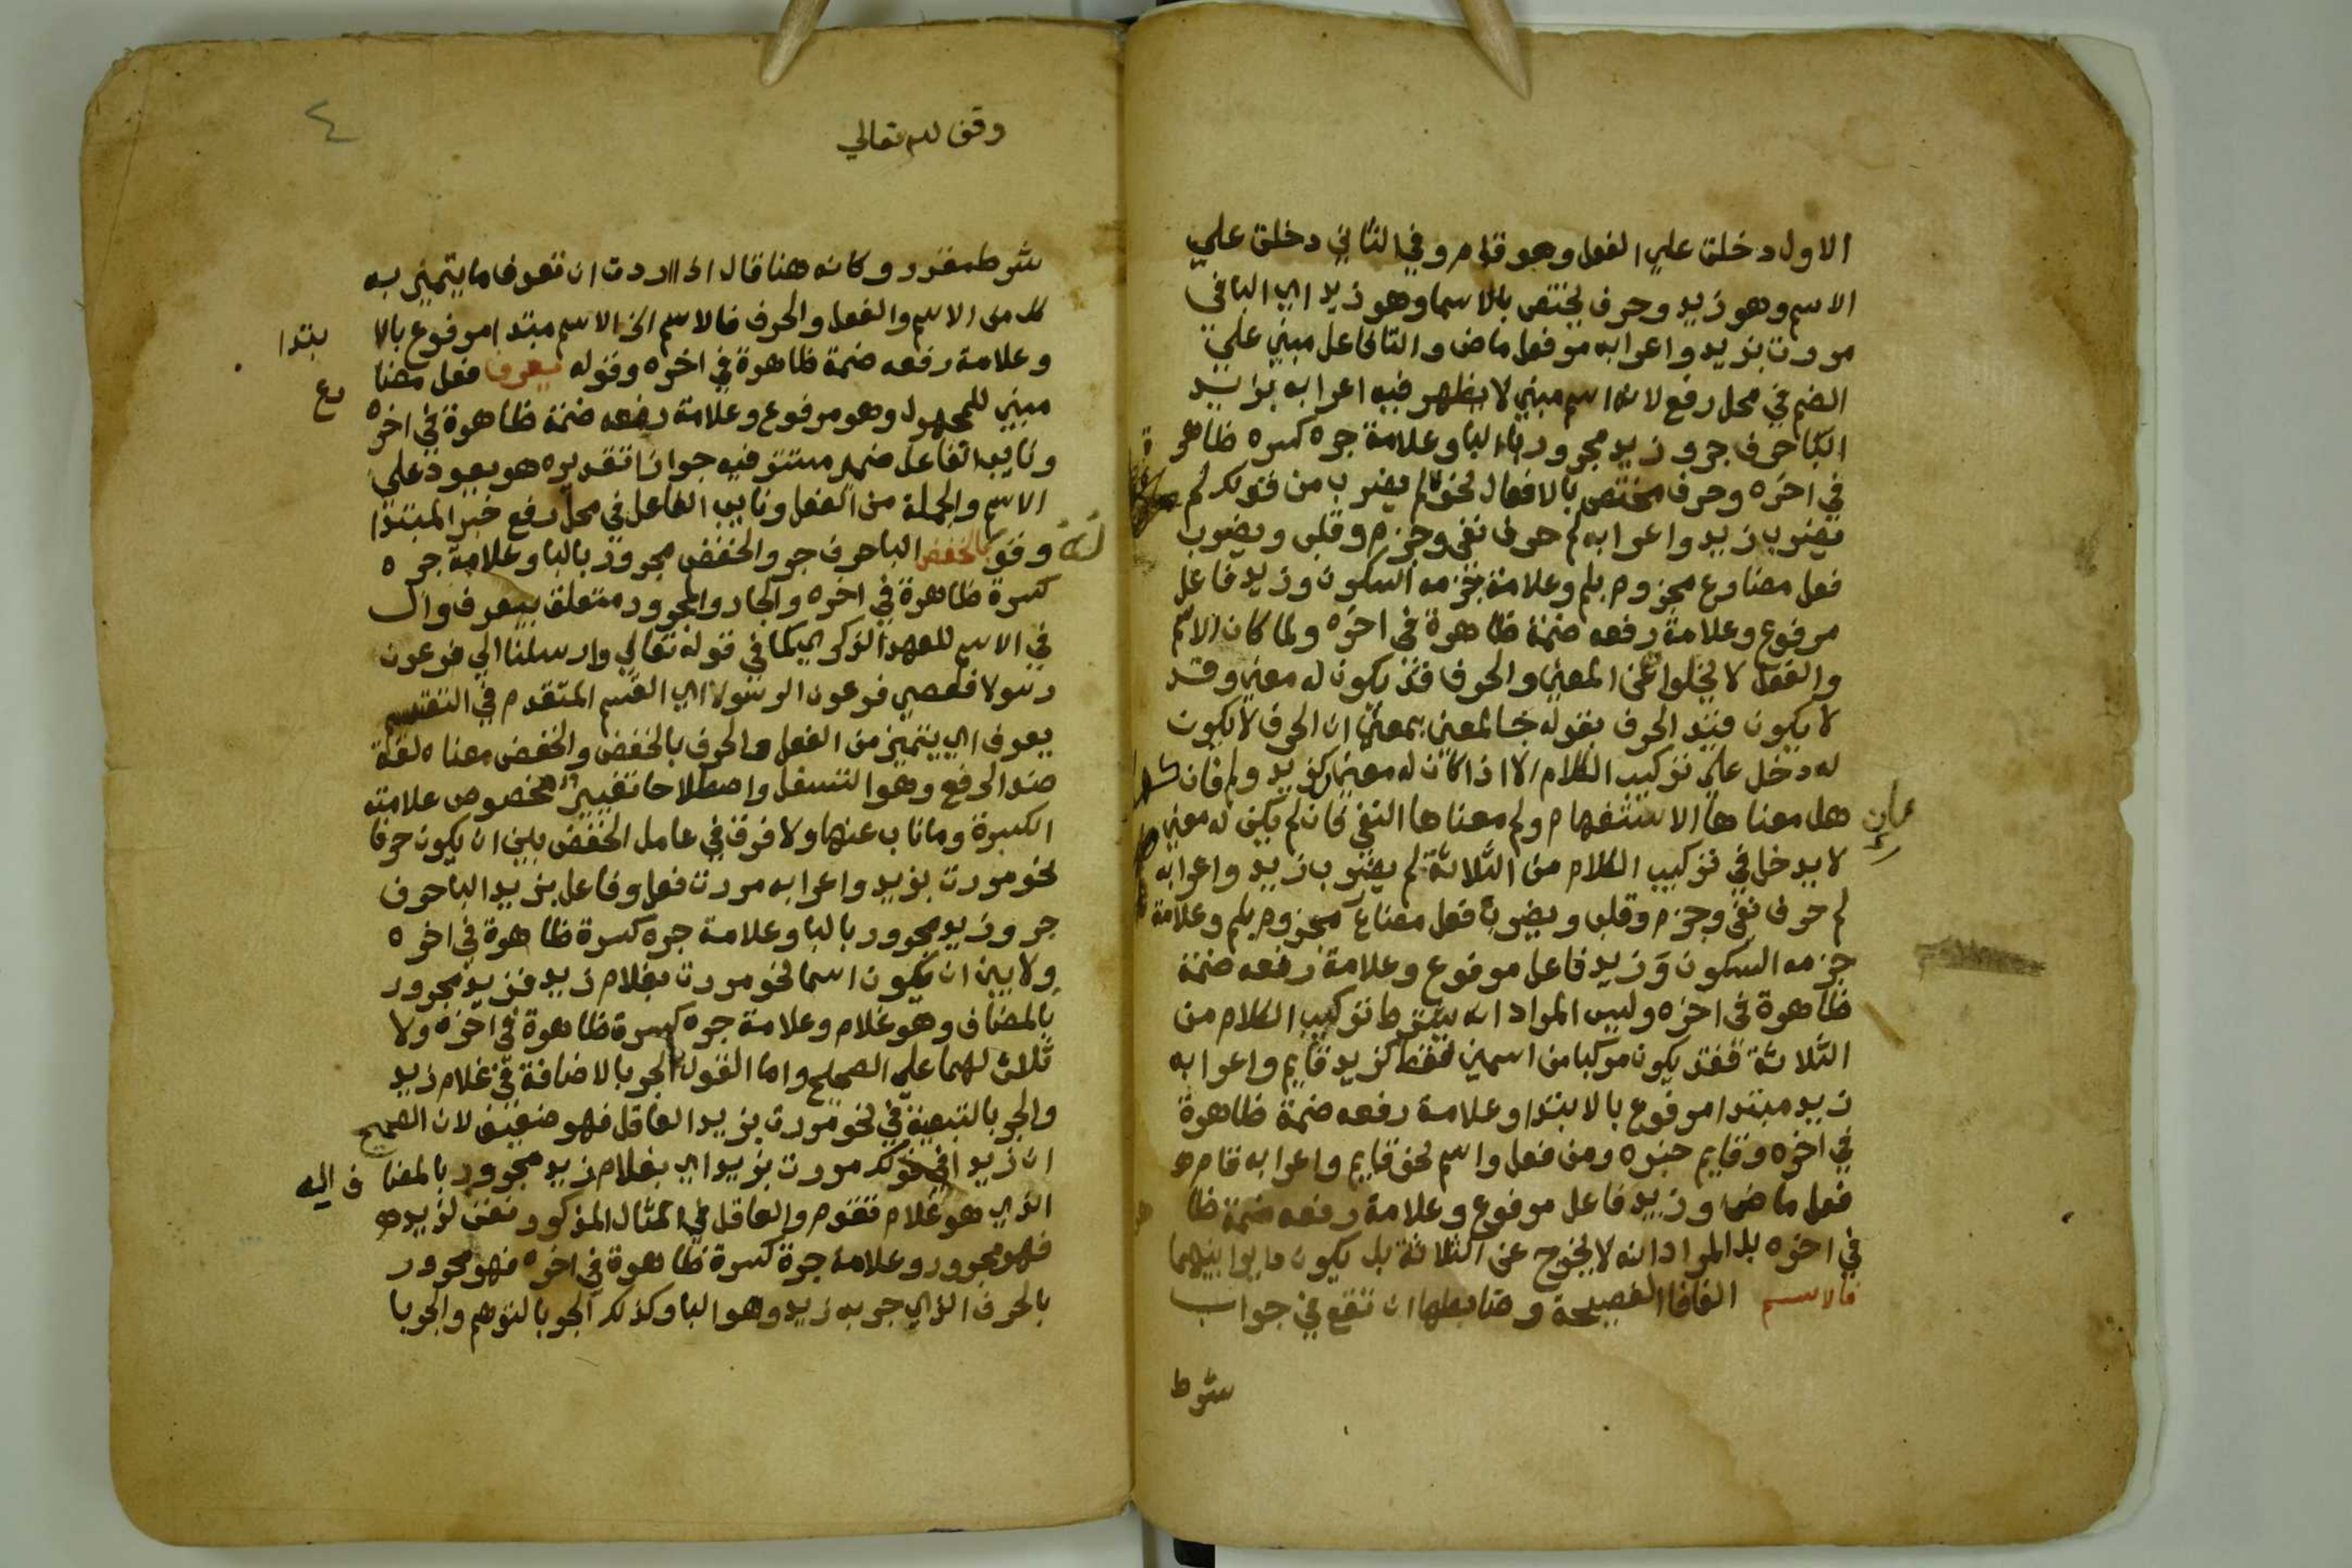 الاول دخلت علي الفعل وهو قام وفي الثاني دخلت علي
الاسم وهو زيد وحرف يختص بالاسما وهو زيد اي البا في
مررت بزيد واعرابه مر فعل ماض والتا فاعل مبني علي
الضم في محل رفع لانه اسم مبني لا يظهر فيه اعراب بزيد
البا حرف جر وزيد مجرور بالبا وعلامة جره كسره ظاهر ة
في اخره وحرف مختص بالافعال نحو لم يضرب من قولك لم
يضرب زيد واعرابه لم حرف نفي وجزم وقلب ويضرب
فعل مضارع مجزوم بلم وعلامة جزمه السكون وزيد فاعل
مرفوع وعلامة رفعه ضمة ظاهرة في اخره ولما كان الاسم
والفعل لا يخلوا عن المعني والحرف قد يكون له معني وقد
لا يكون قيد الحرف بقوله جا لمعني بمعني ان الحرف لا يكون
له دخل علي تركيب الكلام الا اذا كان له معني كزيد ولم فان
هل معناها الاستفهام ولم معناها النفي فان لم يكن له معني
لا يدخل في تركيب الكلام من الثلاثة لم يضرب زيد واعرابه
لم حرف نفي وجزم وقلب ويضرب فعل مضارع مجزوم بلم وعلامة
جزمه السكون وزيد فاعل مرفوع وعلامة رفعه ضمة
ظاهرة في اخره وليس المراد انه يشترط تركيب الكلام من
الثلاثة فقد يكون مركبا من اسمين فقط كزيد قايم واعرابه
زيد مبتدا مرفوع بالابتدا وعلامة رفعه ضمة ظاهرة
في اخره وقايم خبره ومن فعل واسم نحو قايم واعرابه قام
فعل ماض وزيد فاعل مرفوع وعلامة رفعه ضمة ظا
في اخره بل المراد انه لا يخرج عن الثلاثة بل يكون دايرا بينهما
فالاسم الفا فا الفصيحة وضابطها ان تقع في جواب
شرط
وقف لله تعالي
٤
شرط مقدر وكانه هنا قال اذا اردت ان تعرف ما يتميز به
كل من الاسم والفعل والحرف فالاسم الخ الاسم مبتدا مرفوع بالا بتدا
وعلامة رفعه ضمة ظاهرة في اخره وقوله يعرف فعل مضا رع
مبني للمجهول وهو مرفوع وعلامة رفعه ضمة ظاهرة في اخره
ونايب الفاعل ضمير مستتر فيه جوازا تقديره هو يعود علي
الاسم والجملة من الفعل ونايب الفاعل في محل رفع خبر المبتدا
وقو له بالخفض البا حرف جر والخفض مجرور بالبا وعلامة جره
كسرة ظاهرة في اخره والجار والمجرور متعلق بيعرف وال
في الاسم للعهد الذكري كما في قوله تعالي وارسلنا الي فرعون
رسولا فعصي فرعون الرسولا اي القسم المتقدم في التقسيم
يعرف اي يتميز من الفعل والحرف بالخفض والخفض معناه لغة
ضد الرفع وهو التسفل واصطلاحا تغيير مخصوص علامته
الكسرة وما ناب عنها ولا فرق في عامل الخفض بين ان يكون حرفا
نحو مررت بزيد واعرابه مررت فعل وفاعل بزيد البا حرف
جر وزيد مجرور بالبا وعلامة جره كسرة ظاهرة في اخره
ولا بين ان يكون اسما نحو مررت بغلام زيد فزيد مجرور
بالمضاف وهو غلام وعلامة جره كسرة ظاهرة في اخره ولا
ثلاث لهما علي الصحيح واما القول الجر بالاضافة في غلام زيد
والجر بالتبعية في نحو مررت بزيد العاقل فهو ضعيف لان الصحيح
ان زيد في قولك مررت بزيد اي بغلام زيد مجرور بالمضا ف اليه
الذي هو غلام تقوم والعاقل في المثال المذكور نعت لزيد
فهو مجرور وعلامة جره كسرة ظاهرة في اخره فهو مجرور
بالحرف الذي جر به زيد وهو البا وكذلك الجر بالتوهم والجر با